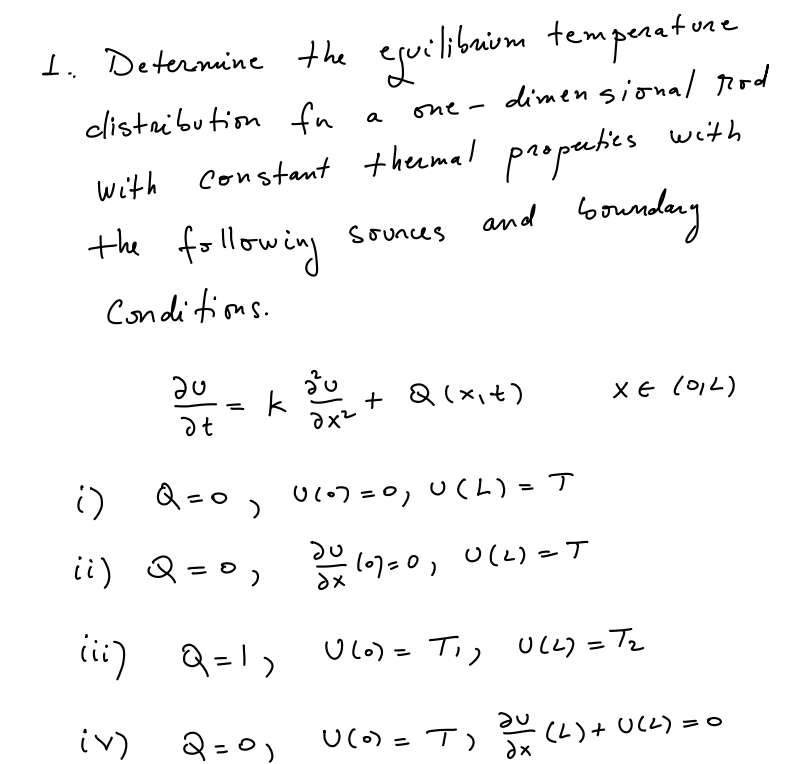 1. Determine the equilibrium temperature
distribution fn a one-dimensional rod
with constant thermal properties with
the following sources and boundary
Conditions.
∂u/∂t = k ∂²u/∂x² + Q(x,t)    x ∈ (0,L)
i) Q=0, u(0)=0, u(L)=T
ii) Q=0, ∂u/∂x (0)=0, u(L)=T
iii) Q=1, u(0)=T₁, u(L)=T₂
iv) Q=0, u(0)=T, ∂u/∂x (L)+u(L)=0